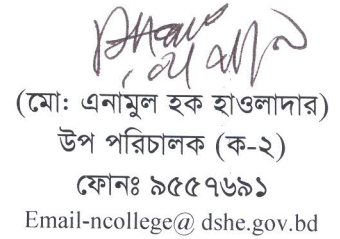 (মো: এনামুল হক হাওলাদার)
উপ পরিচালক (ক-২)
ফোনঃ ৯৫৫৭৬৯১
Email-ncollege@ dshe.gov.bd